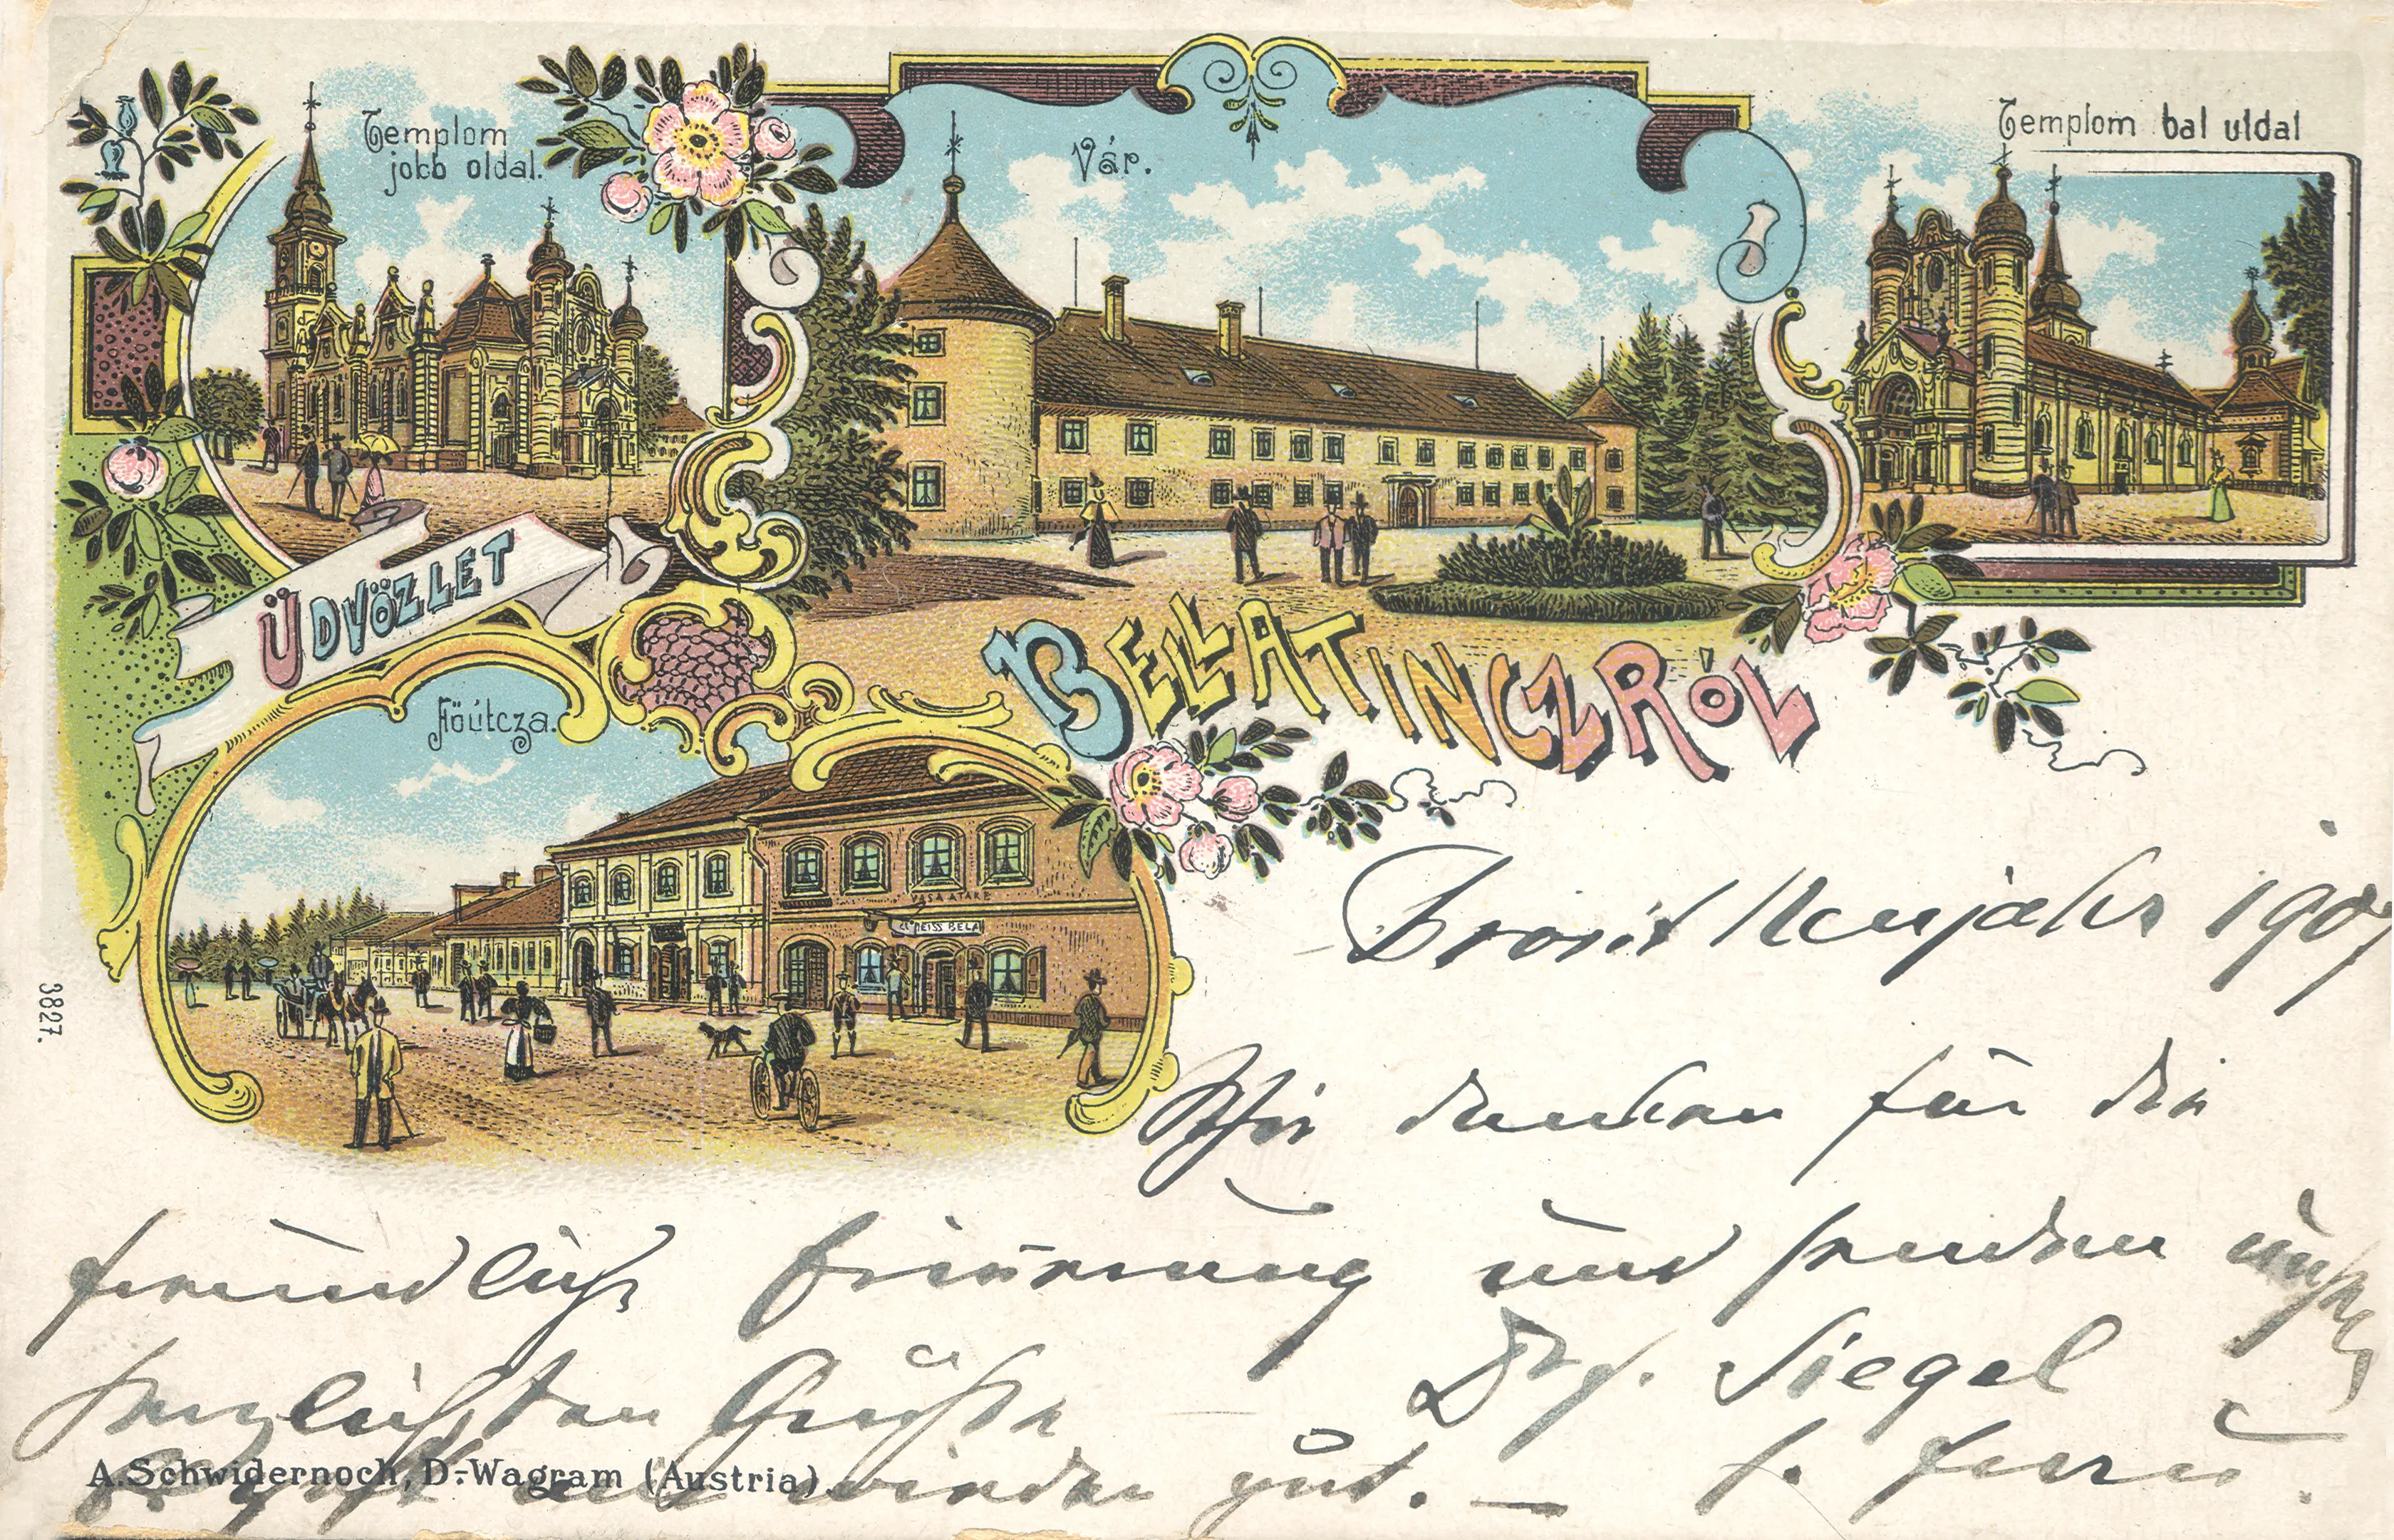 Templom
jobb oldal.
Vár.
Templom bal uldal
ÜDVÖZLET
BELLATINCZRÓL
Föútcza.
VASA ATÁRE
WEISS BELA
3827.
Prosit Neujahr 1907
Wir danken für die
freundliche Erinnerung und senden unsere
herzlichsten Grüße Siegel
wieder gut. —
A. Schwidernoch, D.-Wagram (Austria).